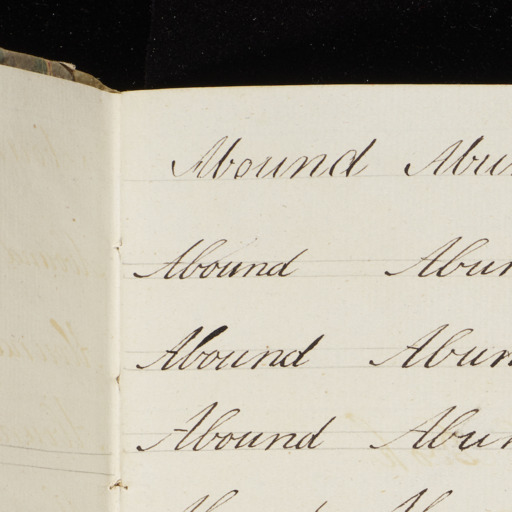 Abound Abun
Abound Abun
Abound Abun
Abound Abun